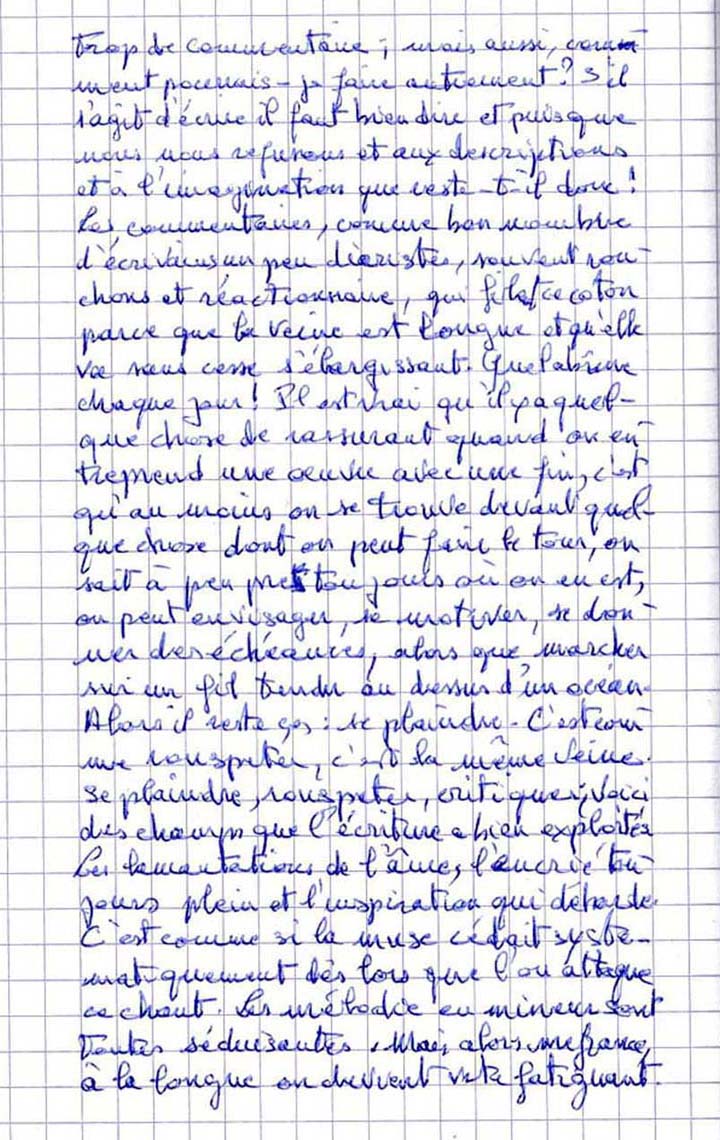 Trop de commentaire ; mais aussi, com-
ment pourrais-je faire autrement ? S'il
s'agit d'écrire il faut bien dire et puisque
nous nous refusons et aux descriptions
et à l'imagination que reste-t-il donc !
Les commentaires, comme bon nombre
d'écrivains un peu diaristes, souvent ron-
chons et réactionnaire, qui file ce coton
parce que la veine est longue et qu'elle
va sans cesse s'élargissant. Quel abîme
chaque jour ! Il est vrai qu'il y a quel-
que chose de rassurant quand on en-
treprend une oeuvre avec une fin, c'est
qu'au moins on se trouve devant quel-
que chose dont on peut faire le tour, on
sait à peu près toujours où on en est,
on peut envisager, se motiver, se don-
ner des échéances, alors que marcher
sur un fil tendu au dessus d'un océan.
Alors il reste ça : se plaindre. C'est com-
me rouspeter, c'est la même veine.
Se plaindre, rouspeter, critiquer, voici
des champs que l'écriture a bien exploités
Les lamentations de l'âme, l'encrié tou-
jours plein et l'inspiration qui déborde.
C'est comme si la muse cédait systé-
matiquement dès lors que l'on attaque
ce chant. Les mélodie en mineur sont
toutes séduisantes. Mais alors
à la longue on devient vite fatiguant.